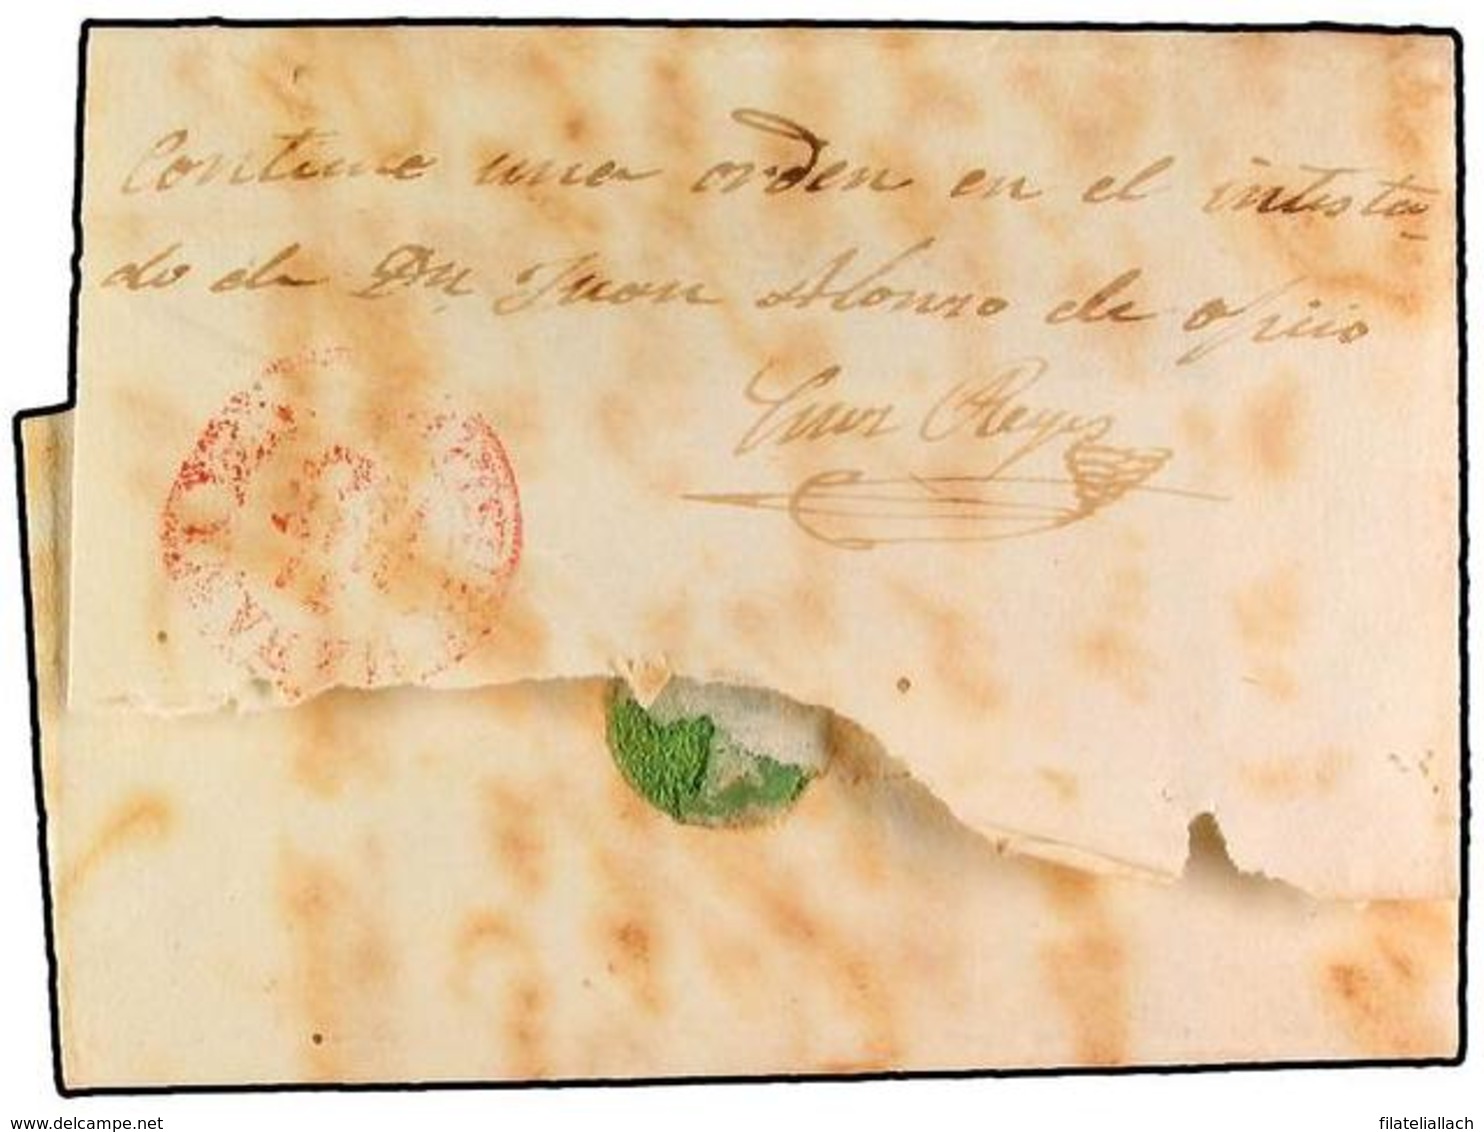 Contiene una orden en el intesta-
do de Dn. Juan Alonso de oficio
Reyes
delcampe.net
filatelialllach